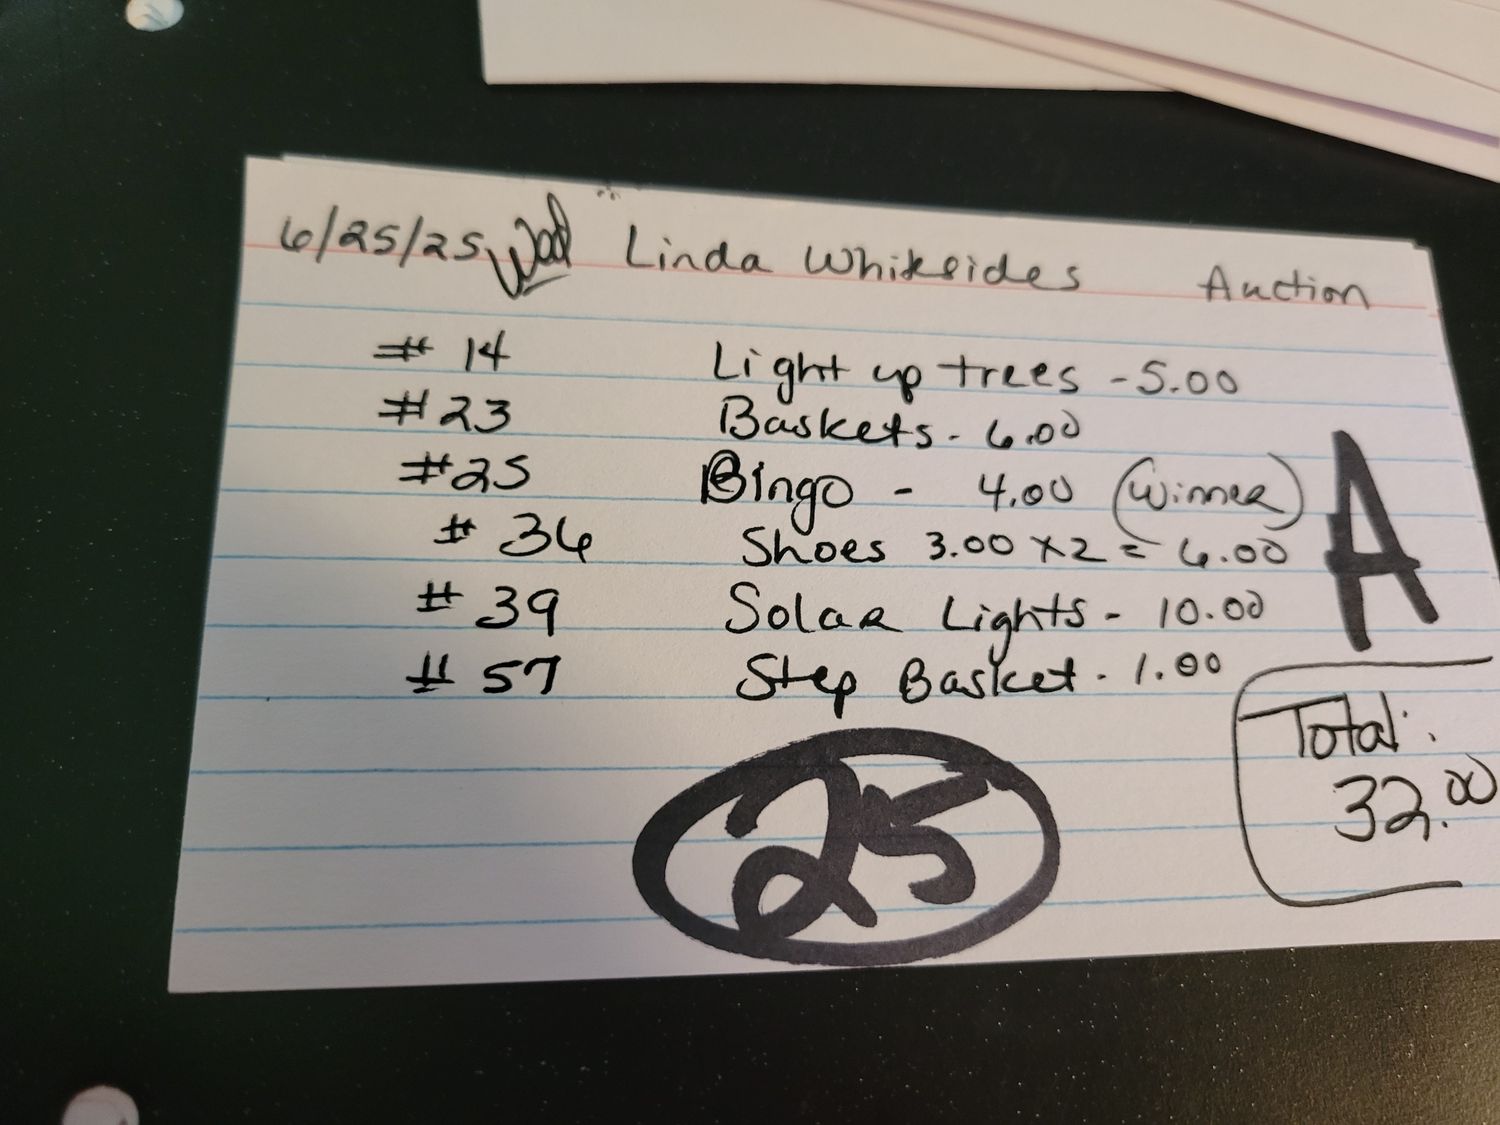 6/25/25 Wed Linda Whitesides Auction
# 14 Light up trees - 5.00
# 23 Baskets - 6.00
# 25 Bingo - 4.00 (Winner)
# 36 Shoes 3.00 x 2 = 6.00
# 39 Solar Lights - 10.00
# 57 Step Basket - 1.00
A
Total:
32.00
25